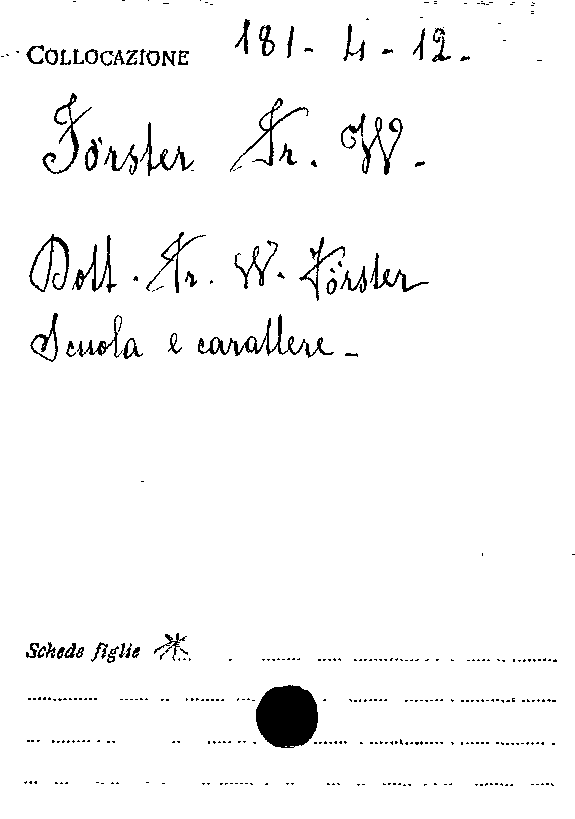 COLLOCAZIONE 181-4-12.
Förster Fr. W.
Dott. Fr. W. Förster
Scuola e carattere.
Schede figlie